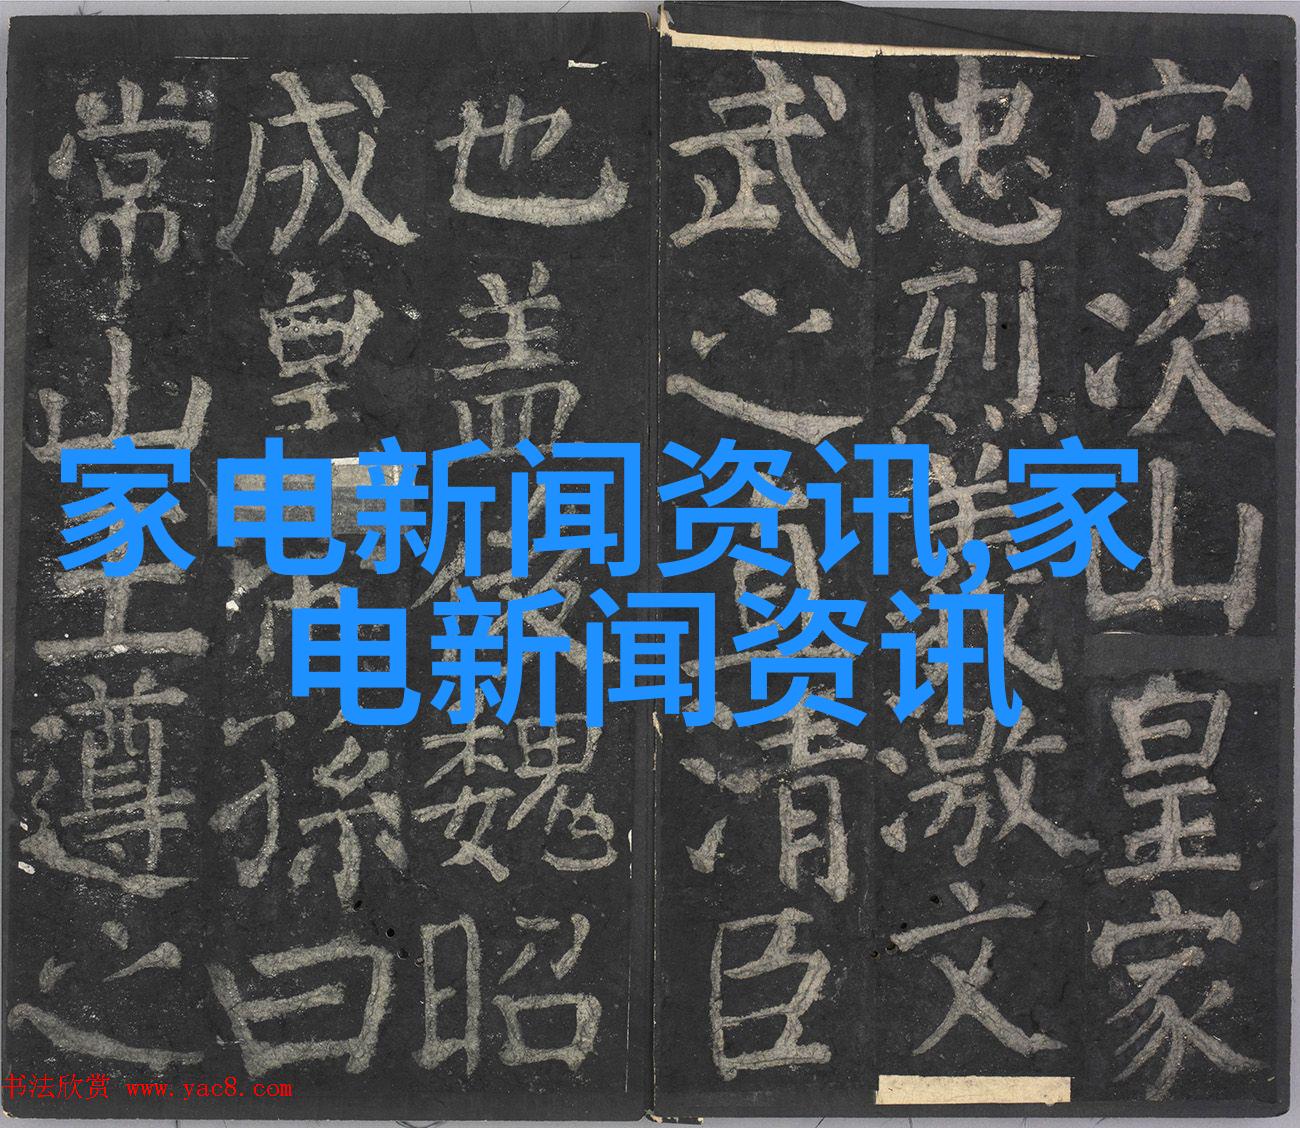 家电新闻资讯,家
电新闻资讯
字次山皇家
忠烈義激文
武之直清臣
也盖後魏昭
成皇帝孫曰
常山王遵之
书法欣赏 www.yac8.com